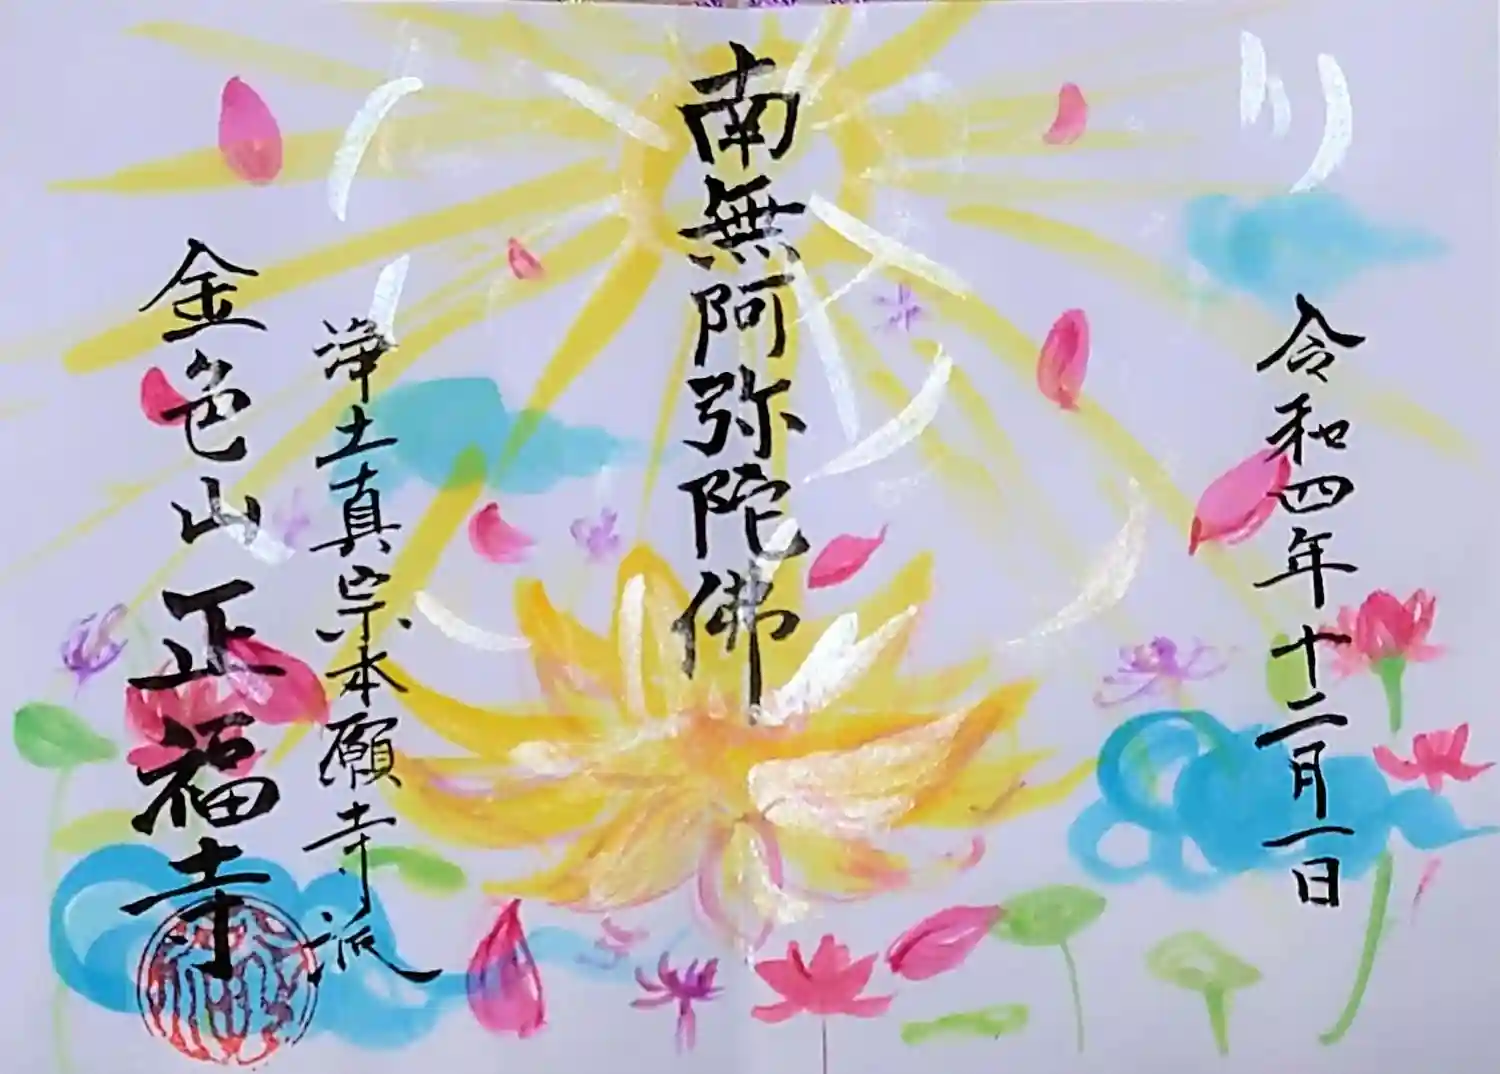 令和四年十二月一日
南無阿弥陀佛
浄土真宗本願寺派
金色山正福寺